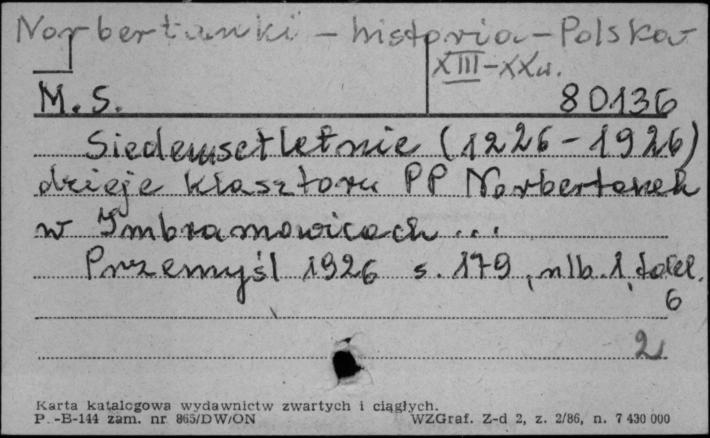 Norbertanki - historia - Polska
XIII-XXw.
M. S. 80136
Siedemsetletnie (1226-1926)
dzieje klasztoru PP Norbertanek
w Imbramowicach...
Przemyśl 1926 s. 179, nlb. 1, tabel.
6
2
Karta katalogowa wydawnictw zwartych i ciągłych.
P.-B-144 zam. nr 865/DW/ON WZGraf. Z-d 2, z. 2/86, n. 7 430 000